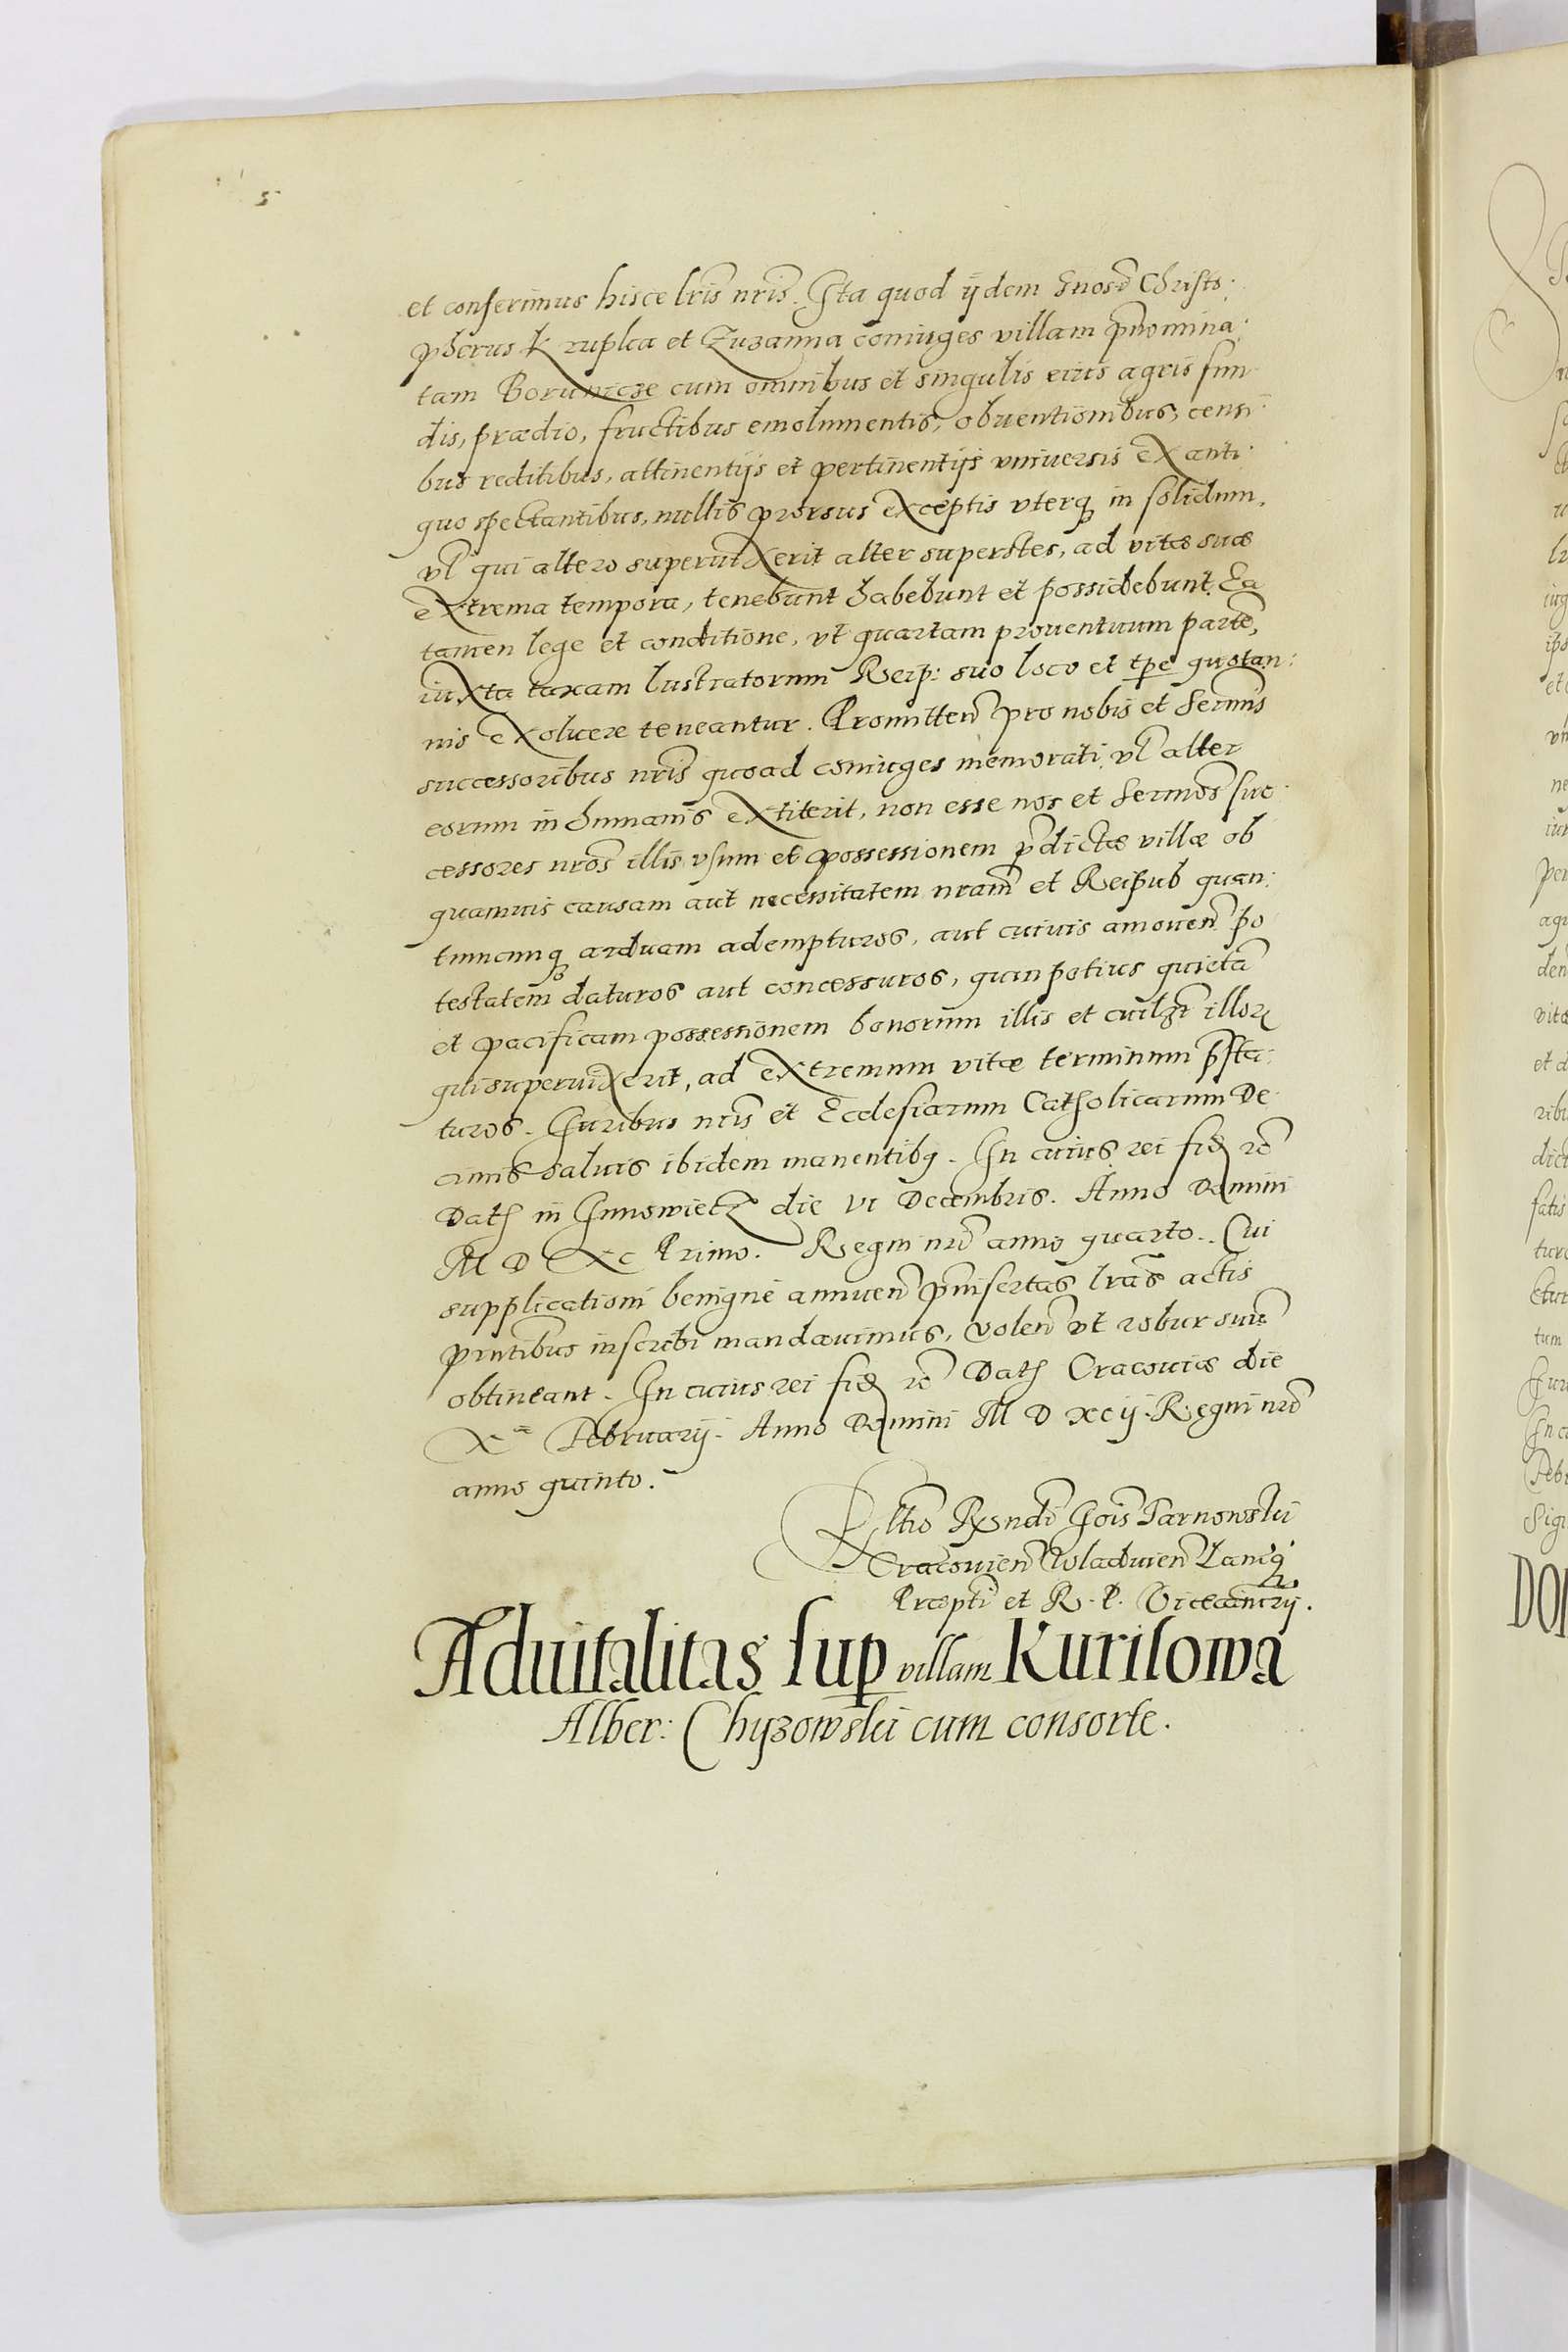 et conferimus hisce lris nris. Ita quod ijdem Gnosi Christo:
pherus Krupka et Zuzanna coniuges villam pnomina:
tam Borunicze cum omnibus et singulis eius agris fun
dis, prædio, fructibus emolumentis, obuentionibus, censi:
bus reditibus, attinentijs et pertinentijs vniuersis ex anti:
quo spectantibus, nullis prorsus exceptis vterq in solidum,
vl qui altero superuixerit alter superstes, ad vitæ suæ
extrema tempora, tenebunt habebunt et possidebunt. Ea
tamen lege et conditione, vt quartam prouentuum parte,
iuxta taxam lustratorum Reip: suo loco et tpe quotan:
nis exoluere teneantur. Promitten pro nobis et Sermis
successoribus nris quoad coniuges memorati, vl alter
eorum in humanis extiterit, non esse nos et Sermos suc
cessores nros illis vsum et possessionem pdictæ villæ ob
quamuis causam aut necessitatem nram et Reipub quan:
tumcunq arduam adempturos, aut cuiuis amouen po
testatem daturos aut concessuros, quin potius quieta
et pacificam possessionem bonorum illis et cuilzt illor
qui superuixerit, ad extremum vitæ terminum psta:
turos. Iuribus nris et Ecclesiarum Catholicarum De
cimis saluis ibidem manentibq. In cuius rei fid rc
Dat in Innowietz die vi Decembris. Anno Domini
M D Xc Primo. Regni nri anno quarto. Cui
supplicationi benigne annuen pinsertas lras actis
pntibus inscribi mandauimus, volen vt robur suu
obtineant. In cuius rei fid rc Dat Cracouiæ die
X Februarij. Anno Domini M D xcij. Regni nri
anno quinto.
Rltio Rxndi Iois Tarnowski
Cracouien Wladuien Lanciq
Præpti et R. P. Vicecancrij.
Aduitalitas sup villam Kurilowa
Alber: Chyzowski cum consorte.